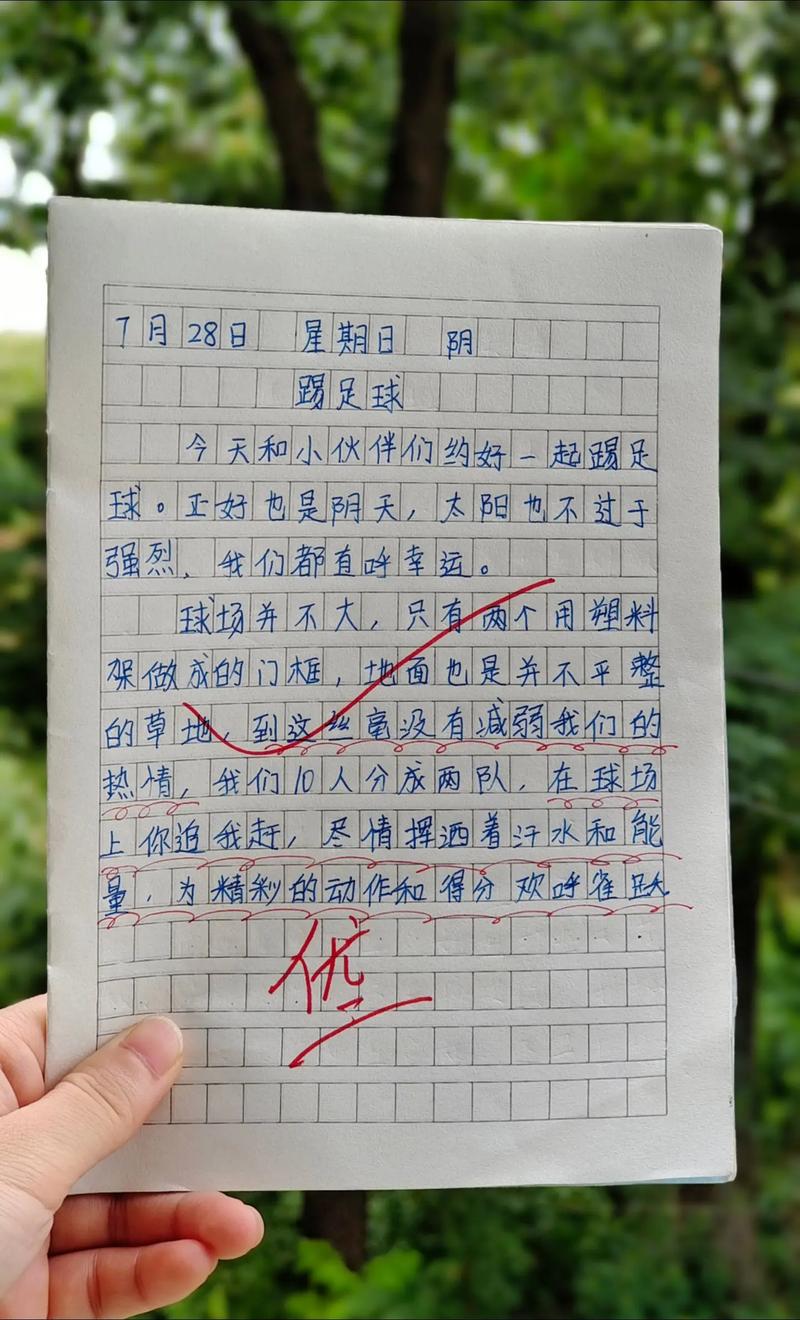 7月28日 星期日 阴
踢足球
今天和小伙伴们约好一起踢足
球。正好也是阴天,太阳也不过于
强烈,我们都直呼幸运。
球场并不大,只有两个用塑料
架做成的门框,地面也是并不平整
的草地,到这丝毫没有减弱我们的
热情,我们10人分成两队,在球场
上你追我赶,尽情挥洒着汗水和能
量,为精彩的动作和得分欢呼雀跃
优